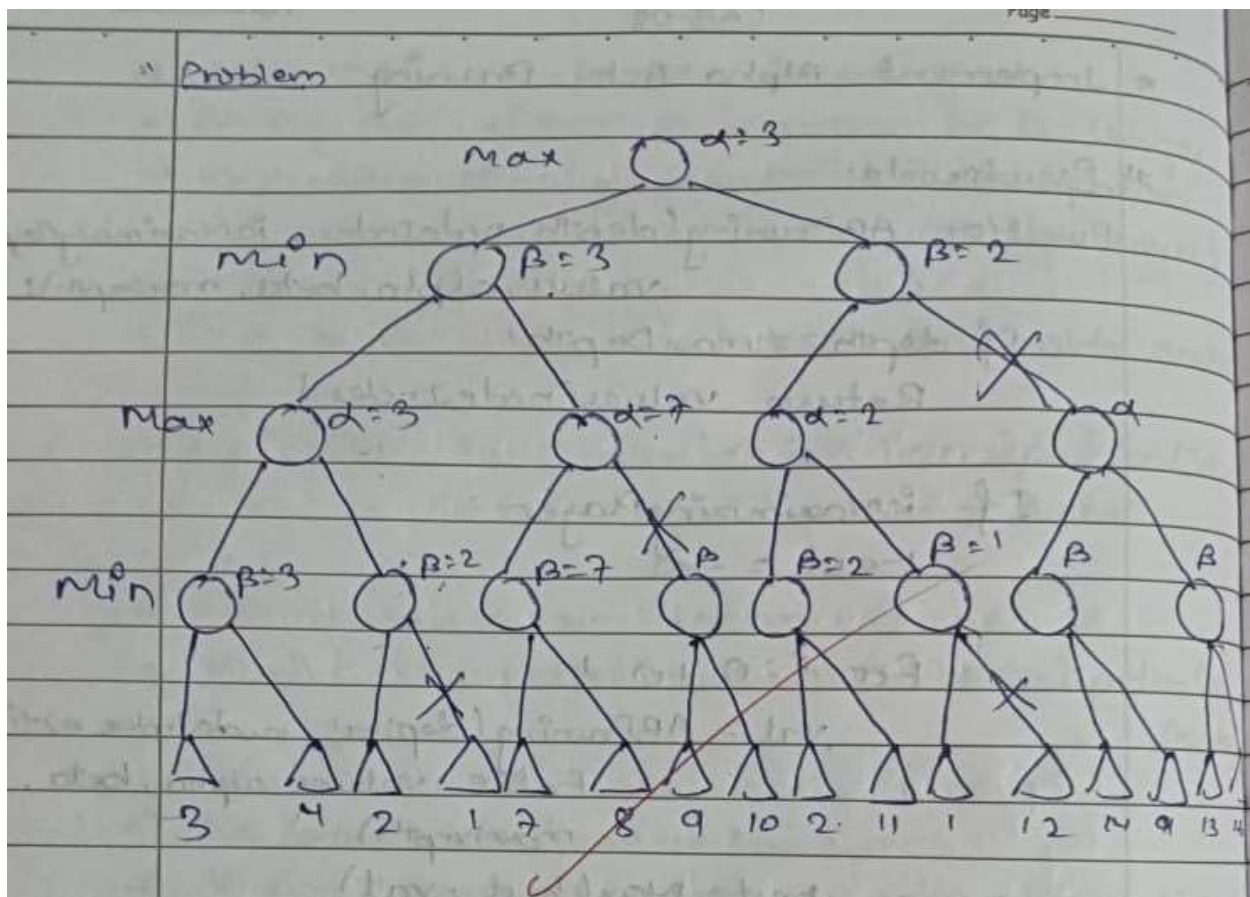 Page
" Problem
Max α=3
Min β=3 β=2
Max α=3 α=7 α=2 α
Min β=3 β=2 β=7 β β=2 β=1 β β
3 4 2 1 7 8 9 10 2 11 1 12 14 9 13